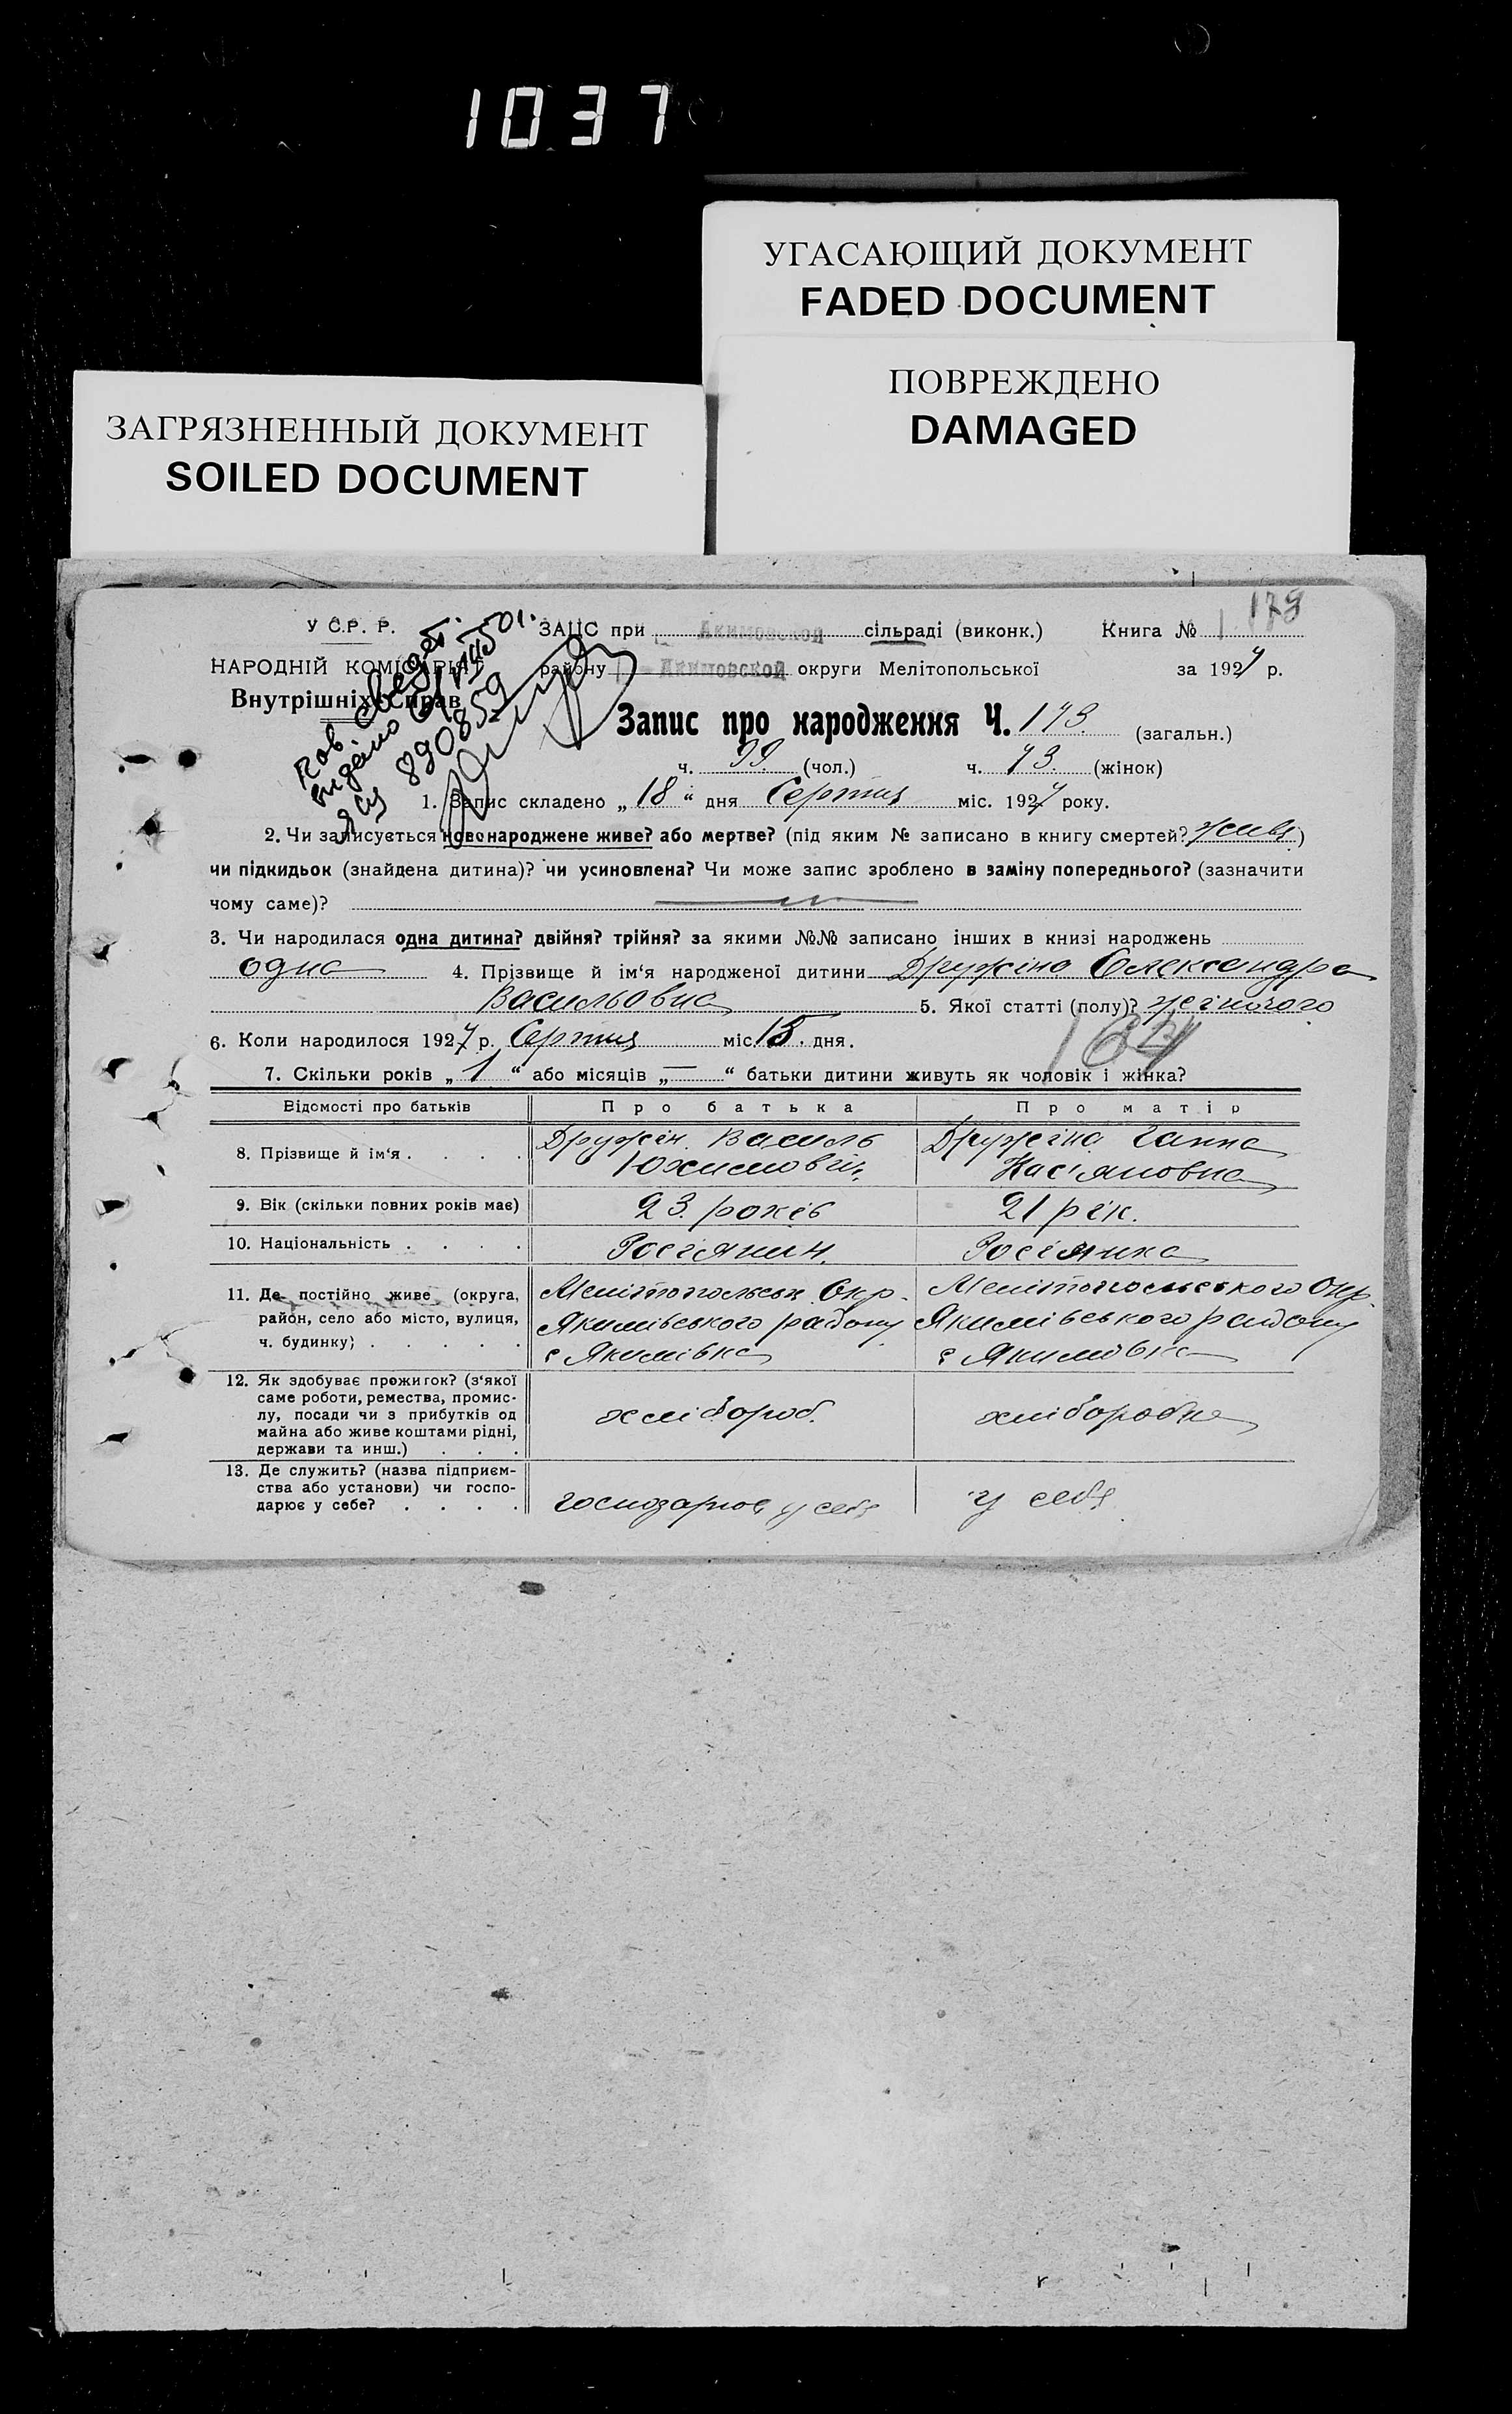 1037
УГАСАЮЩИЙ ДОКУМЕНТ
FADED DOCUMENT
ПОВРЕЖДЕНО
DAMAGED
ЗАГРЯЗНЕННЫЙ ДОКУМЕНТ
SOILED DOCUMENT
У С.Р.Р.
НАРОДНІЙ КОМІСАРІЯТ
Внутрішніх Справ
890859
ЗАЦС при Акимовской сільраді (виконк.) Книга № 1
району Акимовской округи Мелітопольської за 1927 р.
Запис про народження Ч. 173. (загальн.)
ч. 99. (чол.) ч. 73. (жінок)
1. Запис складено „18“ дня Серпня міс. 1927 року.
2. Чи записується новонароджене живе? або мертве? (під яким № записано в книгу смертей? живе)
чи підкидьок (знайдена дитина)? чи усиновлена? Чи може запис зроблено в заміну попереднього? (зазначити
чому саме)?
3. Чи народилася одна дитина? двійня? трійня? за якими №№ записано інших в книзі народжень
одна 4. Прізвище й ім‘я народженої дитини Дружіна Олександра
Васильовна 5. Якої статті (полу)? жіночого
6. Коли народилося 1927 р. Серпня міс 15. дня.
7. Скільки років „1“ або місяців „—“ батьки дитини живуть як чоловік і жінка?
Відомості про батьків Про батька Про матір
8. Прізвище й ім‘я . . . . Дружін. Василь Юхимовіч Дружіна Ганна Кас'яновна
9. Вік (скільки повних років має) 23. років 21 рік.
10. Національність . . . . Росіянин. Росіянка
11. Де постійно живе (округа, район, село або місто, вулиця, ч. будинку) . . . . .
Мелітопольськ Окр. Мелітопольського Окр.
Якимівського району Якимівського району
с Якимівка с Якимовка
12. Як здобуває прожиток? (з‘якої
саме роботи, ремества, промис-
лу, посади чи з прибутків од
майна або живе коштами рідні,
держави та инш.) . . .
хлібороб. хліборобка
13. Де служить? (назва підприєм-
ства або установи) чи госпо-
дарює у себе? . . . .
господарює у себе у себе